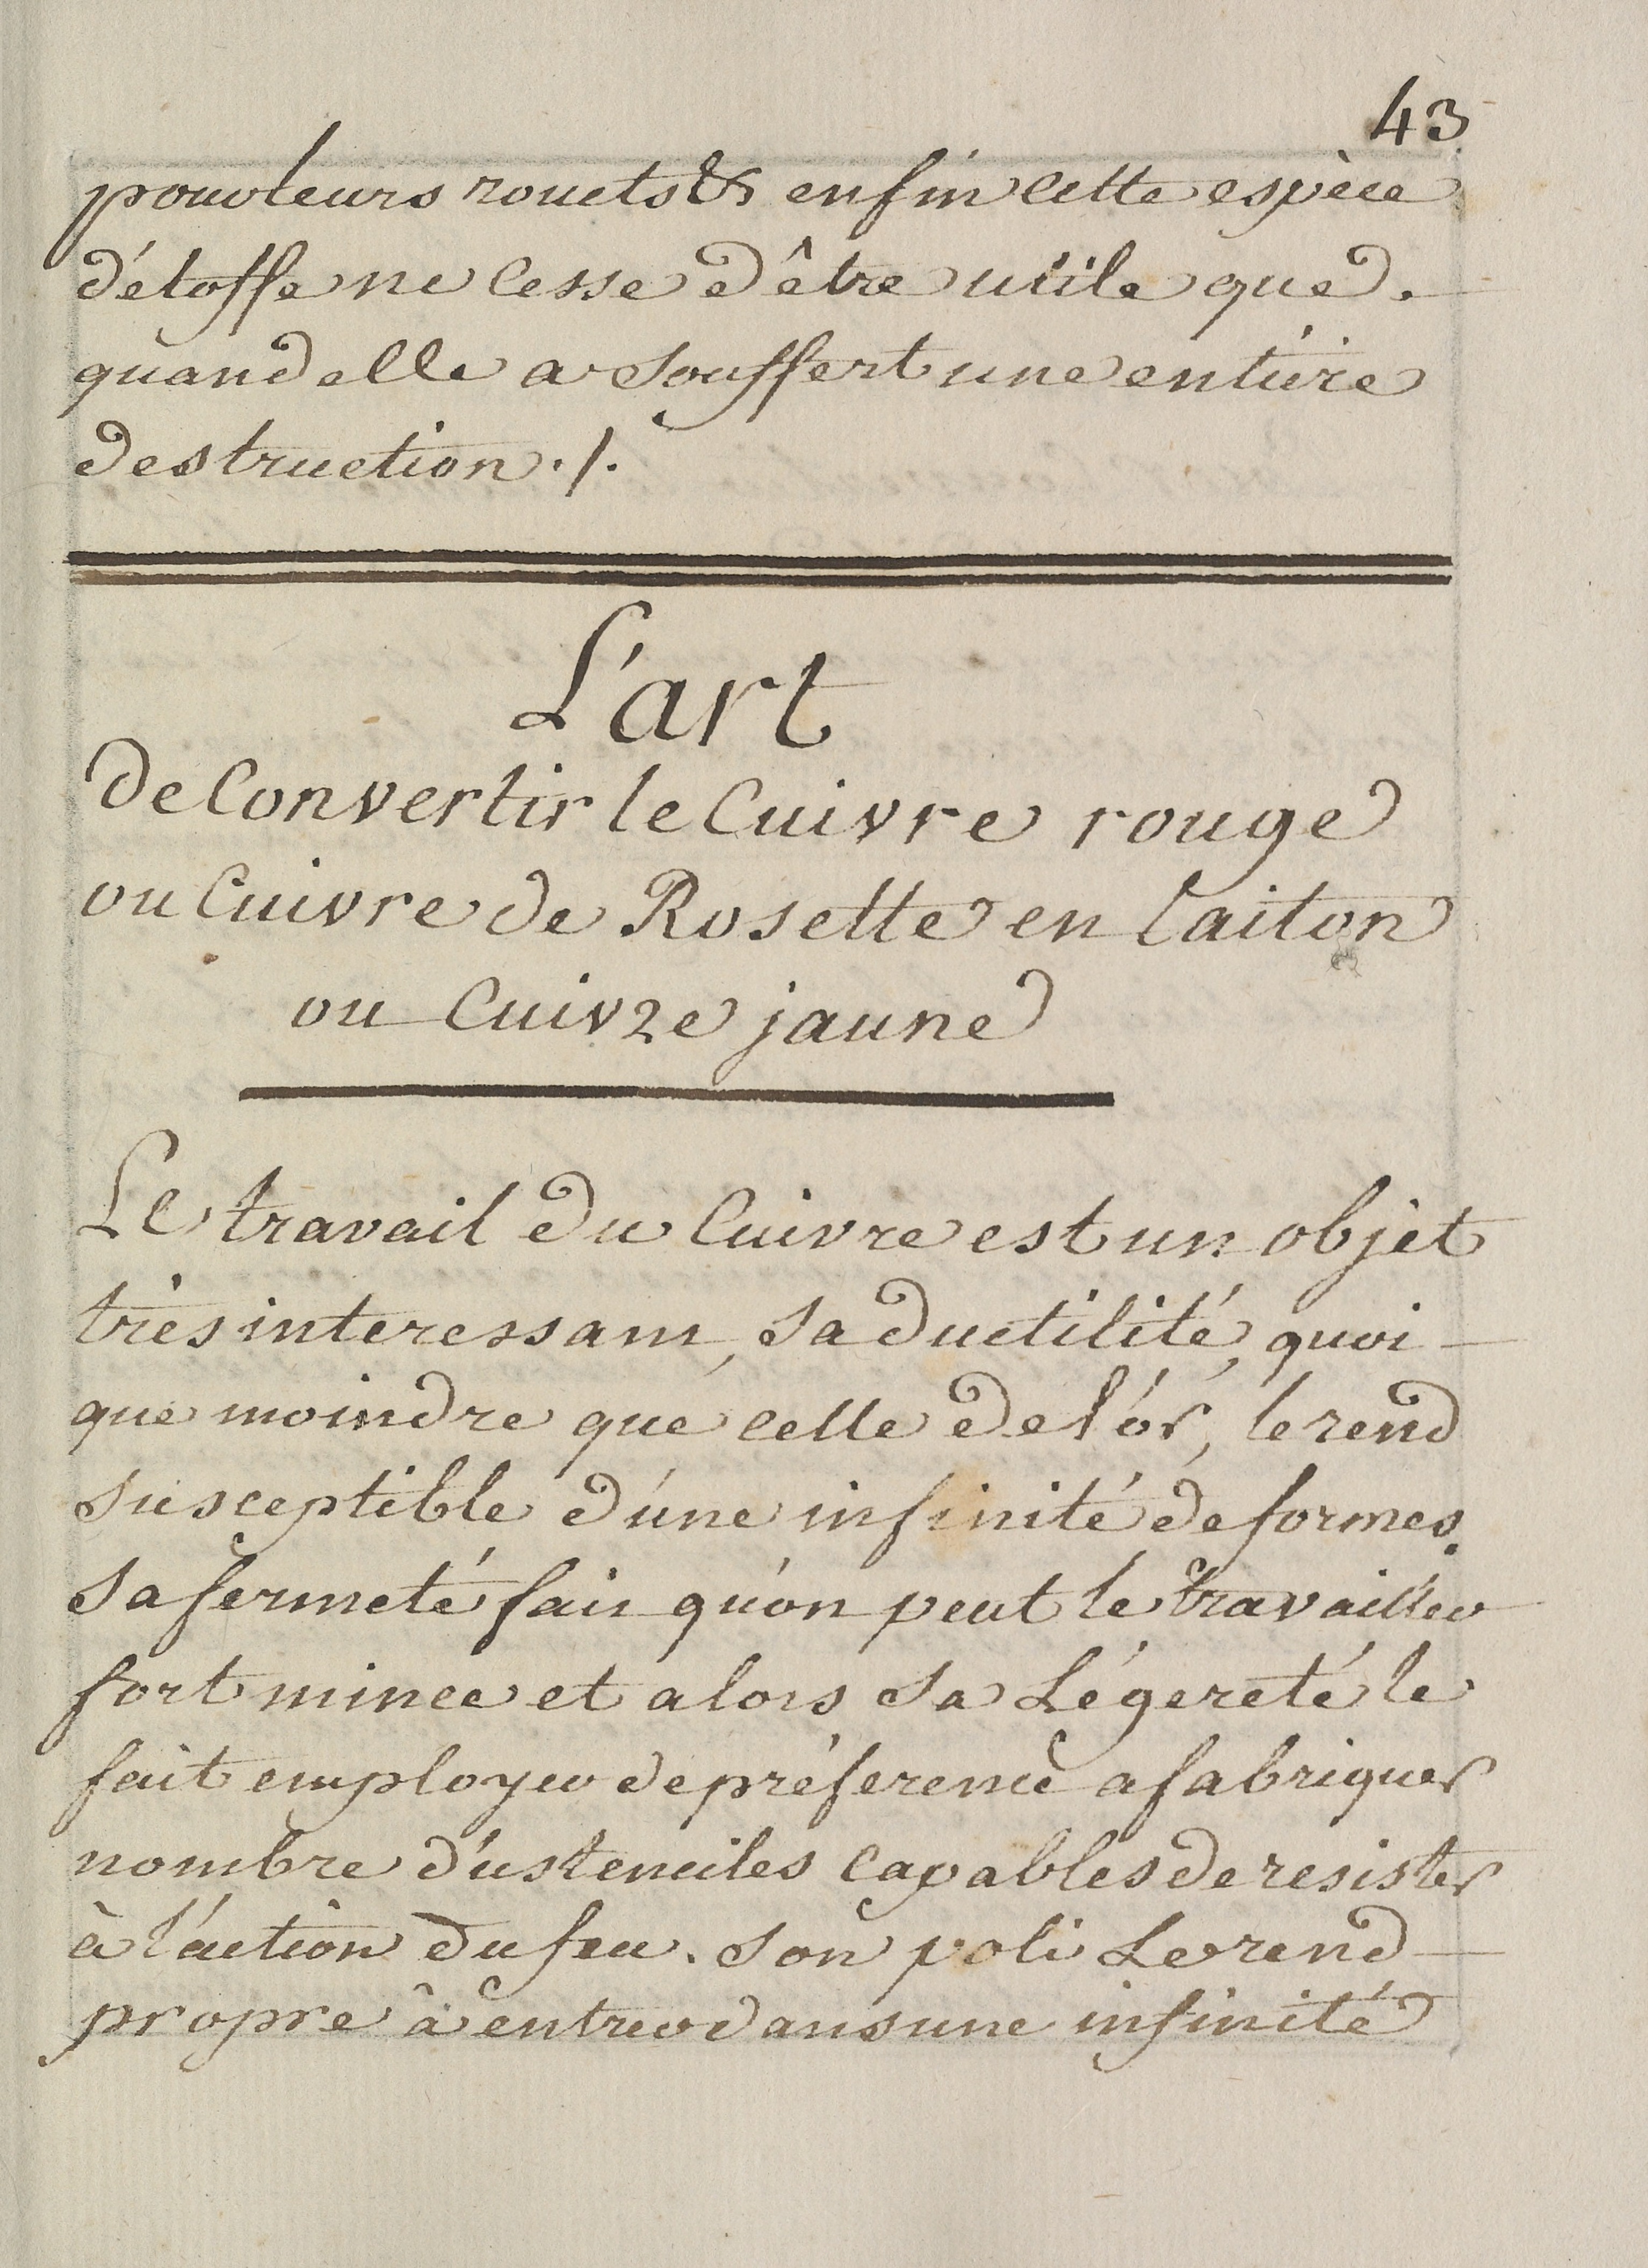 43
pour leurs rouets & enfin cette espèce
d'étoffe ne cesse d'être utile que
quand elle a souffert une entière
destruction ./.
L'art
de Convertir le Cuivre rouge
ou Cuivre de Rosette en Laiton
ou Cuivre jaune
Le travail du Cuivre est un objet
très interessant, sa ductilité, quoi
que moindre que celle de l'or, le rend
susceptible d'une infinité de formes.
sa fermeté fait qu'on peut le travailler
fort mince et alors sa Légereté le
fait employer de préference a fabriquer
nombre d'ustenciles capables de resister
à l'action du feu. son poli Le rend
propre à entrer dans une infinité